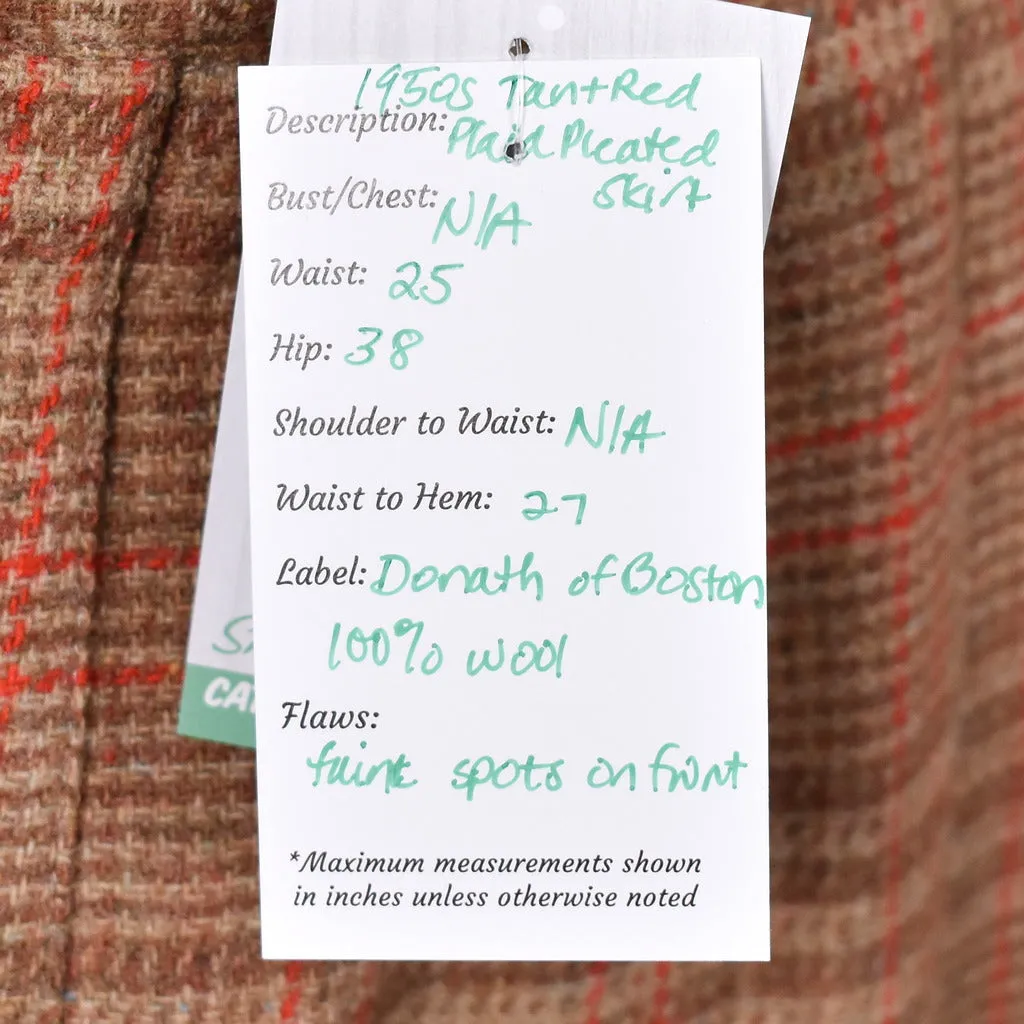 1950s Tan+Red
Description: Plaid Pleated
Skirt
Bust/Chest: N/A
Waist: 25
Hip: 38
Shoulder to Waist: N/A
Waist to Hem: 27
Label: Donath of Boston
100% wool
Flaws:
faint spots on front
*Maximum measurements shown
in inches unless otherwise noted